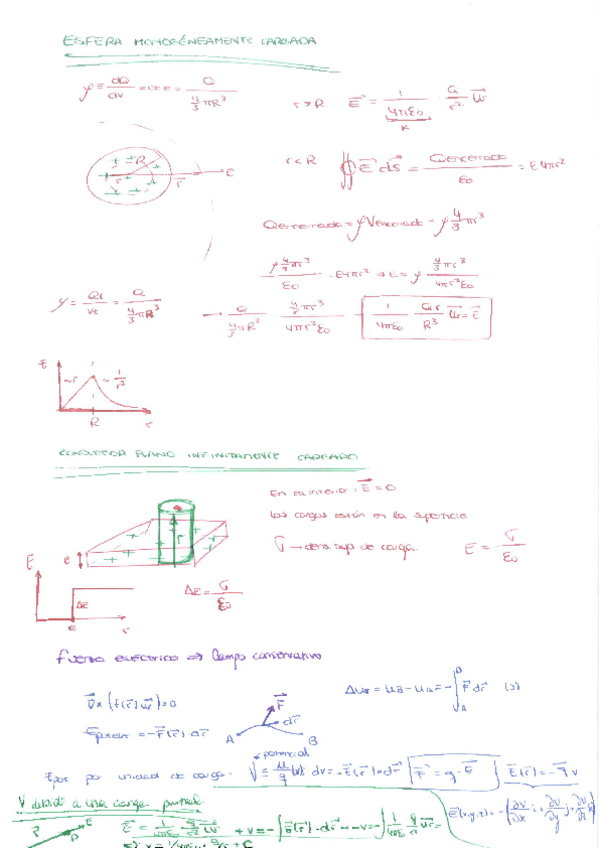 ESFERA HOMOGÉNEAMENTE CARGADA
ρ ≡ dQ/dV = cte = Q / (4/3 πR³)
r > R E⃗ = 1/(4πε₀) · Q/r² u⃗
K
R r⃗ r⃗ E⃗
r < R ∯ E⃗ dS⃗ = Qencerrada/ε₀ = E4πr²
Qencerrada = ρVencerrado = ρ 4/3 πr³
ρ 4/3 πr³ / ε₀ = E4πr² → E = ρ · 4/3 πr³ / 4πr²ε₀
ρ = Qt/Vt = Q / (4/3 πR³) → Q / (4/3 πR³) · 4/3 πr³ / 4πr²ε₀ = 1/(4πε₀) Qr/R³ u⃗r = E⃗
E ~r ~ 1/r²
R r
CONDUCTOR PLANO INFINITAMENTE CARGADO
En el interior: E⃗ = 0
Las cargas están en la superficie
σ → dens. sup de carga. E = σ/ε₀
e r
E ΔE ΔE = σ/ε₀
e r
Fuerza eléctrica ⇒ Campo conservativo
∇⃗ × (f(r⃗) u⃗) = 0
ΔU = UB − UA = −∫ F⃗ dr⃗ (J)
F⃗ dr⃗
A B
potencial
Epot por unidad de carga. V = U/q (V) dV = −E⃗(r⃗) · dr⃗ F⃗ = q · E⃗ E⃗(r⃗) = −∇⃗ V
V debido a una carga puntual
E⃗(x,y,z) = −(∂V/∂x i, ∂V/∂y j, ∂V/∂z k)